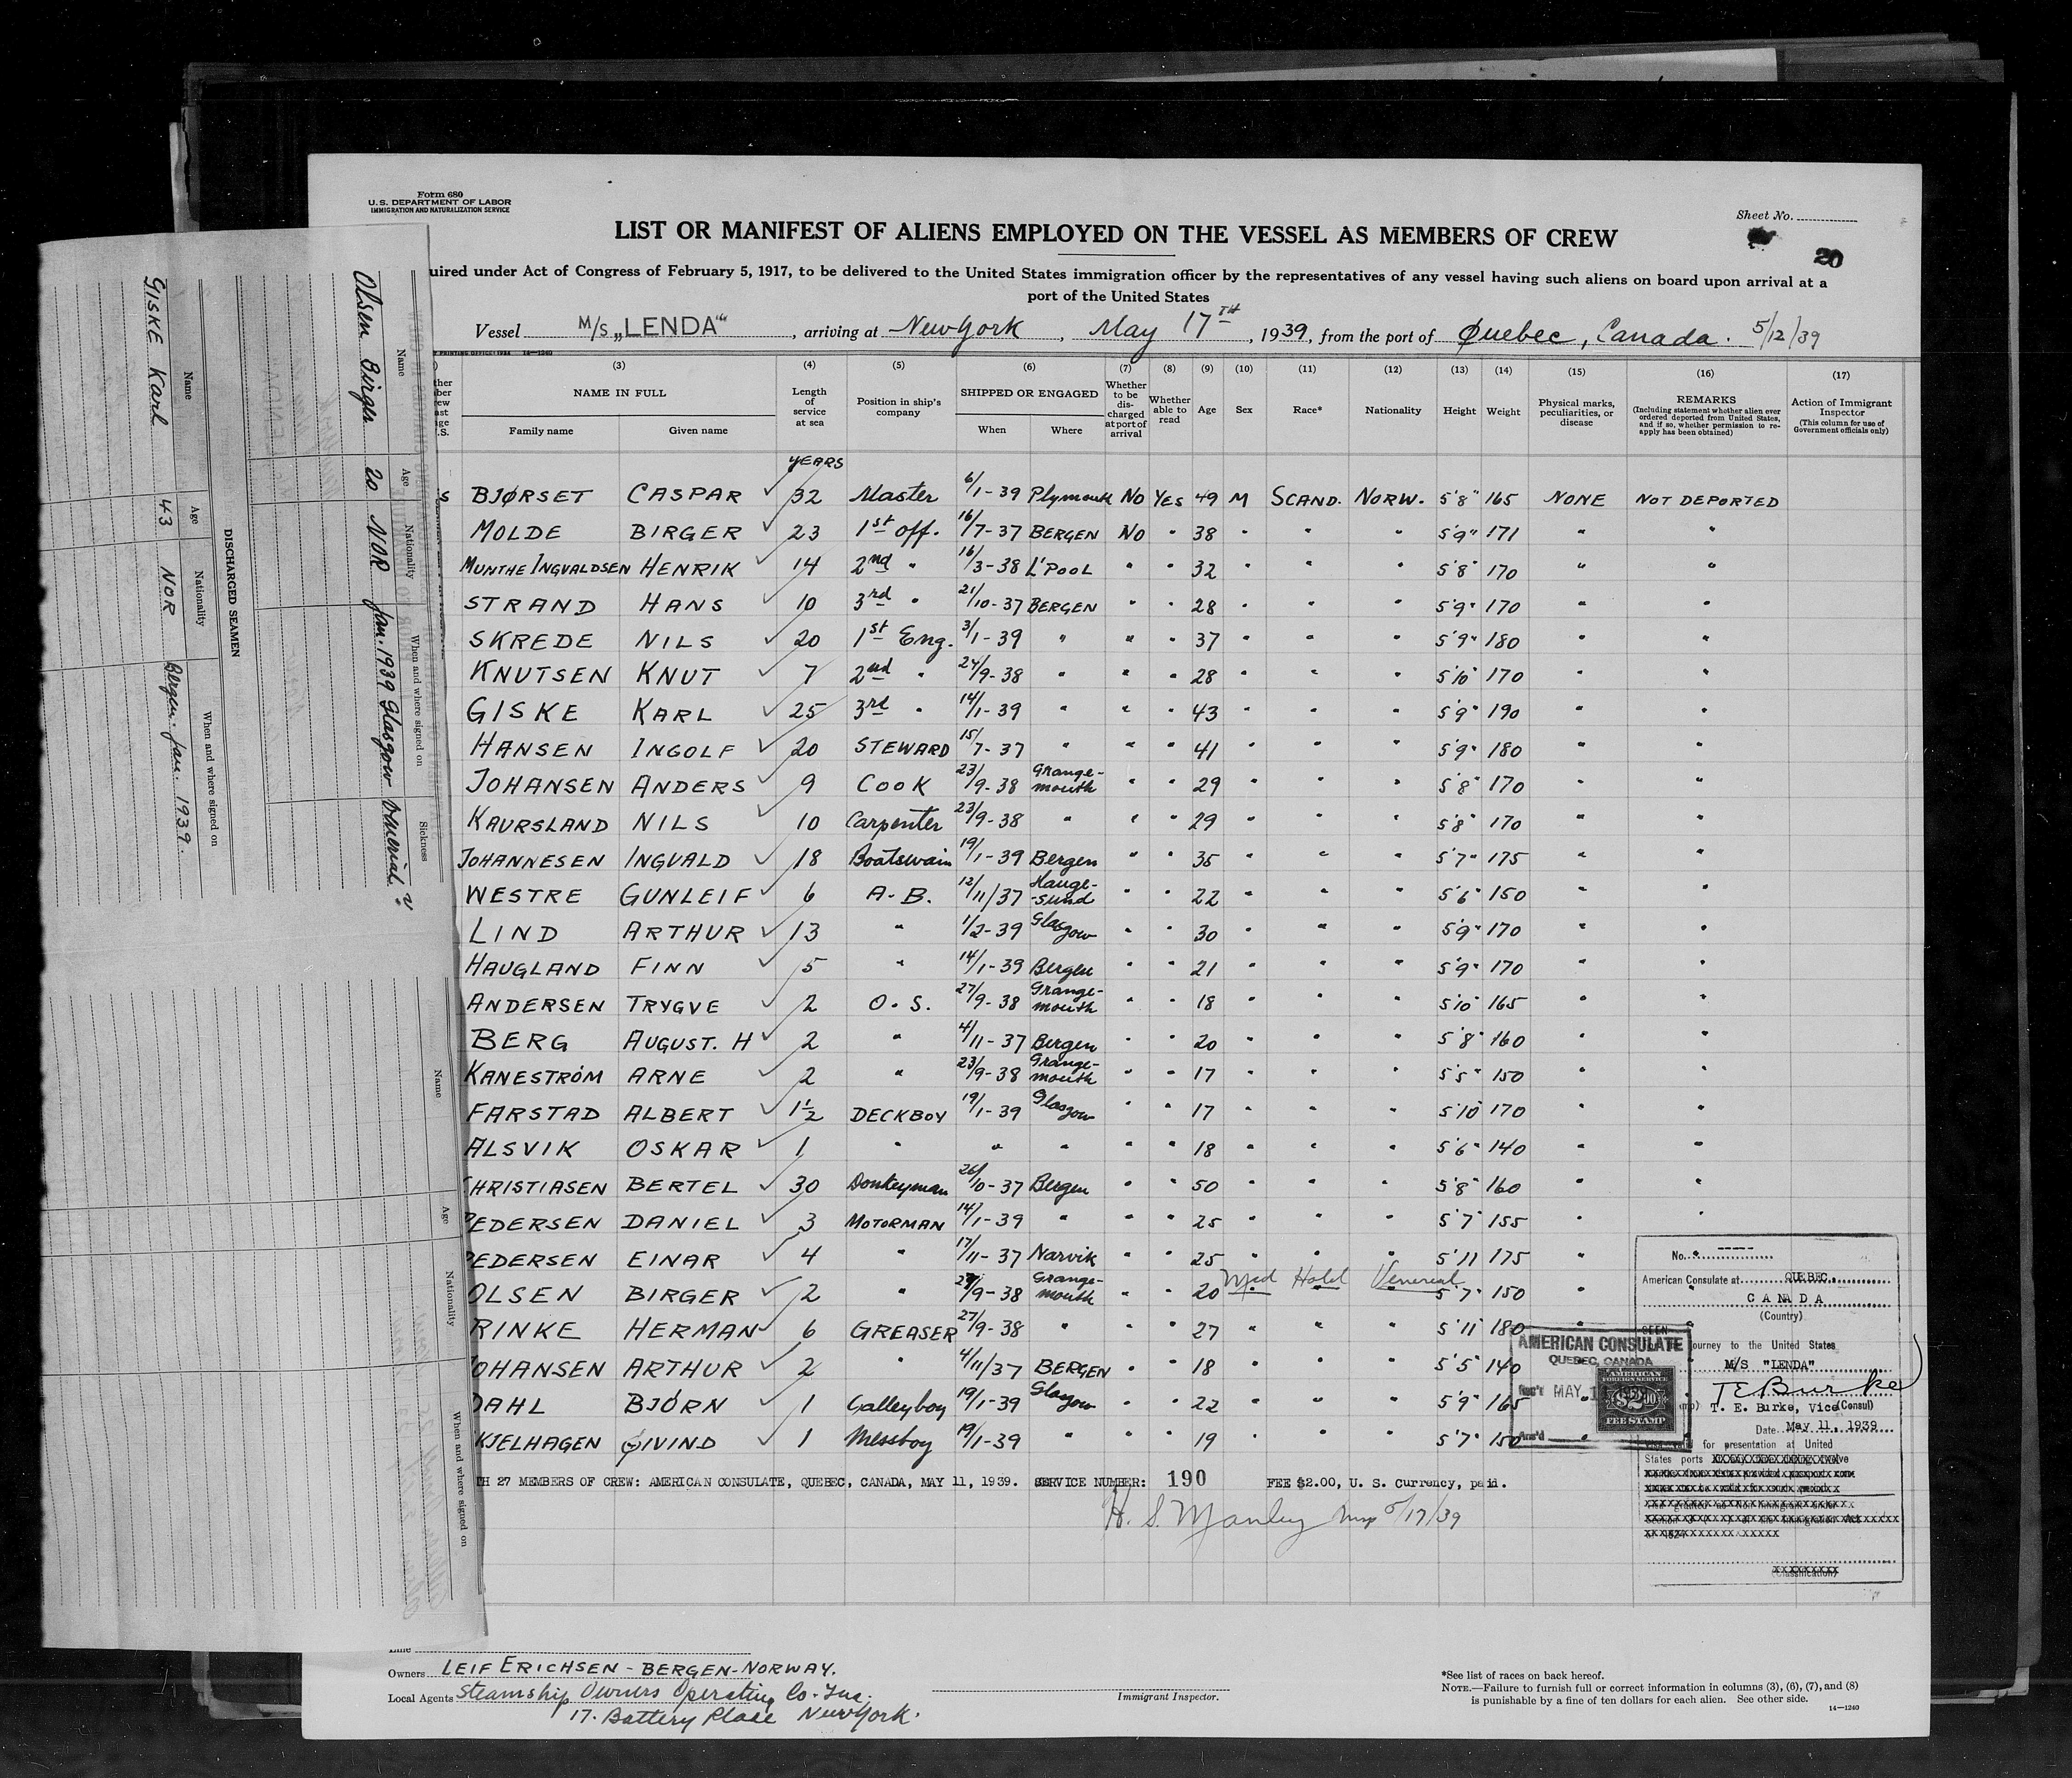 Form 680
U. S. DEPARTMENT OF LABOR
IMMIGRATION AND NATURALIZATION SERVICE
Sheet No.
20
LIST OR MANIFEST OF ALIENS EMPLOYED ON THE VESSEL AS MEMBERS OF CREW
uired under Act of Congress of February 5, 1917, to be delivered to the United States immigration officer by the representatives of any vessel having such aliens on board upon arrival at a
port of the United States
Vessel M/S „LENDA", arriving at New York, May 17TH, 1939, from the port of Quebec, Canada. 5/12/39
PRINTING OFFICE: 1934 14—1240
(3) (4) (5) (6) (7) (8) (9) (10) (11) (12) (13) (14) (15) (16) (17)
NAME IN FULL
Family name Given name
Length of service at sea
Position in ship's company
SHIPPED OR ENGAGED
When Where
Whether to be discharged at port of arrival
Whether able to read
Age Sex Race* Nationality Height Weight
Physical marks, peculiarities, or disease
REMARKS
(Including statement whether alien ever ordered deported from United States, and if so, whether permission to reapply has been obtained)
Action of Immigrant Inspector
(This column for use of Government officials only)
YEARS
BJØRSET CASPAR 32 Master 6/1-39 Plymouth NO YES 49 M SCAND. NORW. 5'8" 165 NONE NOT DEPORTED
MOLDE BIRGER 23 1st off. 16/7-37 BERGEN NO " 38 " " " 5'9" 171 " "
MUNTHE INGVALDSEN HENRIK 14 2nd " 16/3-38 L'POOL " " 32 " " " 5'8" 170 " "
STRAND HANS 10 3rd " 21/10-37 BERGEN " " 28 " " " 5'9" 170 " "
SKREDE NILS 20 1st Eng. 3/1-39 " " " 37 " " " 5'9" 180 " "
KNUTSEN KNUT 7 2nd " 24/9-38 " " " 28 " " " 5'10" 170 " "
GISKE KARL 25 3rd " 14/1-39 " " " 43 " " " 5'9" 190 " "
HANSEN INGOLF 20 STEWARD 15/7-37 " " " 41 " " " 5'9" 180 " "
JOHANSEN ANDERS 9 COOK 23/9-38 Grange-mouth " " 29 " " " 5'8" 170 " "
KAURSLAND NILS 10 Carpenter 23/9-38 " " " 29 " " " 5'8" 170 " "
JOHANNESEN INGVALD 18 Boatswain 19/1-39 Bergen " " 35 " " " 5'7" 175 " "
WESTRE GUNLEIF 6 A-B. 12/11/37 Hauge-sund " " 22 " " " 5'6" 150 " "
LIND ARTHUR 13 " 1/2-39 Glasgow " " 30 " " " 5'9" 170 " "
HAUGLAND FINN 5 " 14/1-39 Bergen " " 21 " " " 5'9" 170 " "
ANDERSEN TRYGVE 2 O.S. 27/9-38 Grange-mouth " " 18 " " " 5'10" 165 " "
BERG AUGUST. H 2 " 4/11-37 Bergen " " 20 " " " 5'8" 160 " "
KANESTRÓM ARNE 2 " 23/9-38 Grange-mouth " " 17 " " " 5'5" 150 " "
FARSTAD ALBERT 1½ DECKBOY 19/1-39 Glasgow " " 17 " " " 5'10" 170 " "
ALSVIK OSKAR 1 " " " " " 18 " " " 5'6" 140 " "
HRISTIASEN BERTEL 30 Donkeyman 26/10-37 Bergen " " 50 " " " 5'8" 160 " "
EDERSEN DANIEL 3 MOTORMAN 14/1-39 " " " 25 " " " 5'7" 155 " "
EDERSEN EINAR 4 " 17/11-37 Narvik " " 25 " " " 5'11 175 "
OLSEN BIRGER 2 " /9-38 Grange-mouth " " 20 Med Hold Venereal 5'7" 150 " "
RINKE HERMAN 6 GREASER 27/9-38 " " " 27 " " " 5'11" 180
OHANSEN ARTHUR 2 " 4/11/37 BERGEN " " 18 " " " 5'5" 140
DAHL BJÓRN 1 Galleyboy 19/1-39 Glasgow " " 22 " " " 5'9" 165
KJELHAGEN ØIVIND 1 Messboy 19/1-39 " " " 19 " " " 5'7" 150
TH 27 MEMBERS OF CREW: AMERICAN CONSULATE, QUEBEC, CANADA, MAY 11, 1939. SERVICE NUMBER: 190 FEE $2.00, U. S. Currency, paid.
H. S. Manley Insp 5/17/39
No.
American Consulate at QUEBEC,
CANADA
(Country)
SEEN
ourney to the United States
M/S "LENDA"
T E Burke
T. E. Burke, Vice (Consul)
Date May 11, 1939
for presentation at United
States ports
(Classification)
AMERICAN CONSULATE
QUEBEC, CANADA
Rec'd MAY 11 1939
Ans'd
AMERICAN
FOREIGN SERVICE
$2.00
FEE STAMP
Owners LEIF ERICHSEN - BERGEN - NORWAY.
Local Agents Steamship Owners Operating Co. Inc.
17. Battery Place New York.
Immigrant Inspector.
*See list of races on back hereof.
NOTE.—Failure to furnish full or correct information in columns (3), (6), (7), and (8)
is punishable by a fine of ten dollars for each alien. See other side.
14—1240
DISCHARGED SEAMEN
Name Age Nationality When and where signed on
GISKE Karl 43 NOR Bergen. Jan. 1939.
Name Age Nationality When and where signed on Sickness
Olsen Birger 20 NOR Jan. 1939 Glasgow Venerial
Name Age Nationality When and where signed on